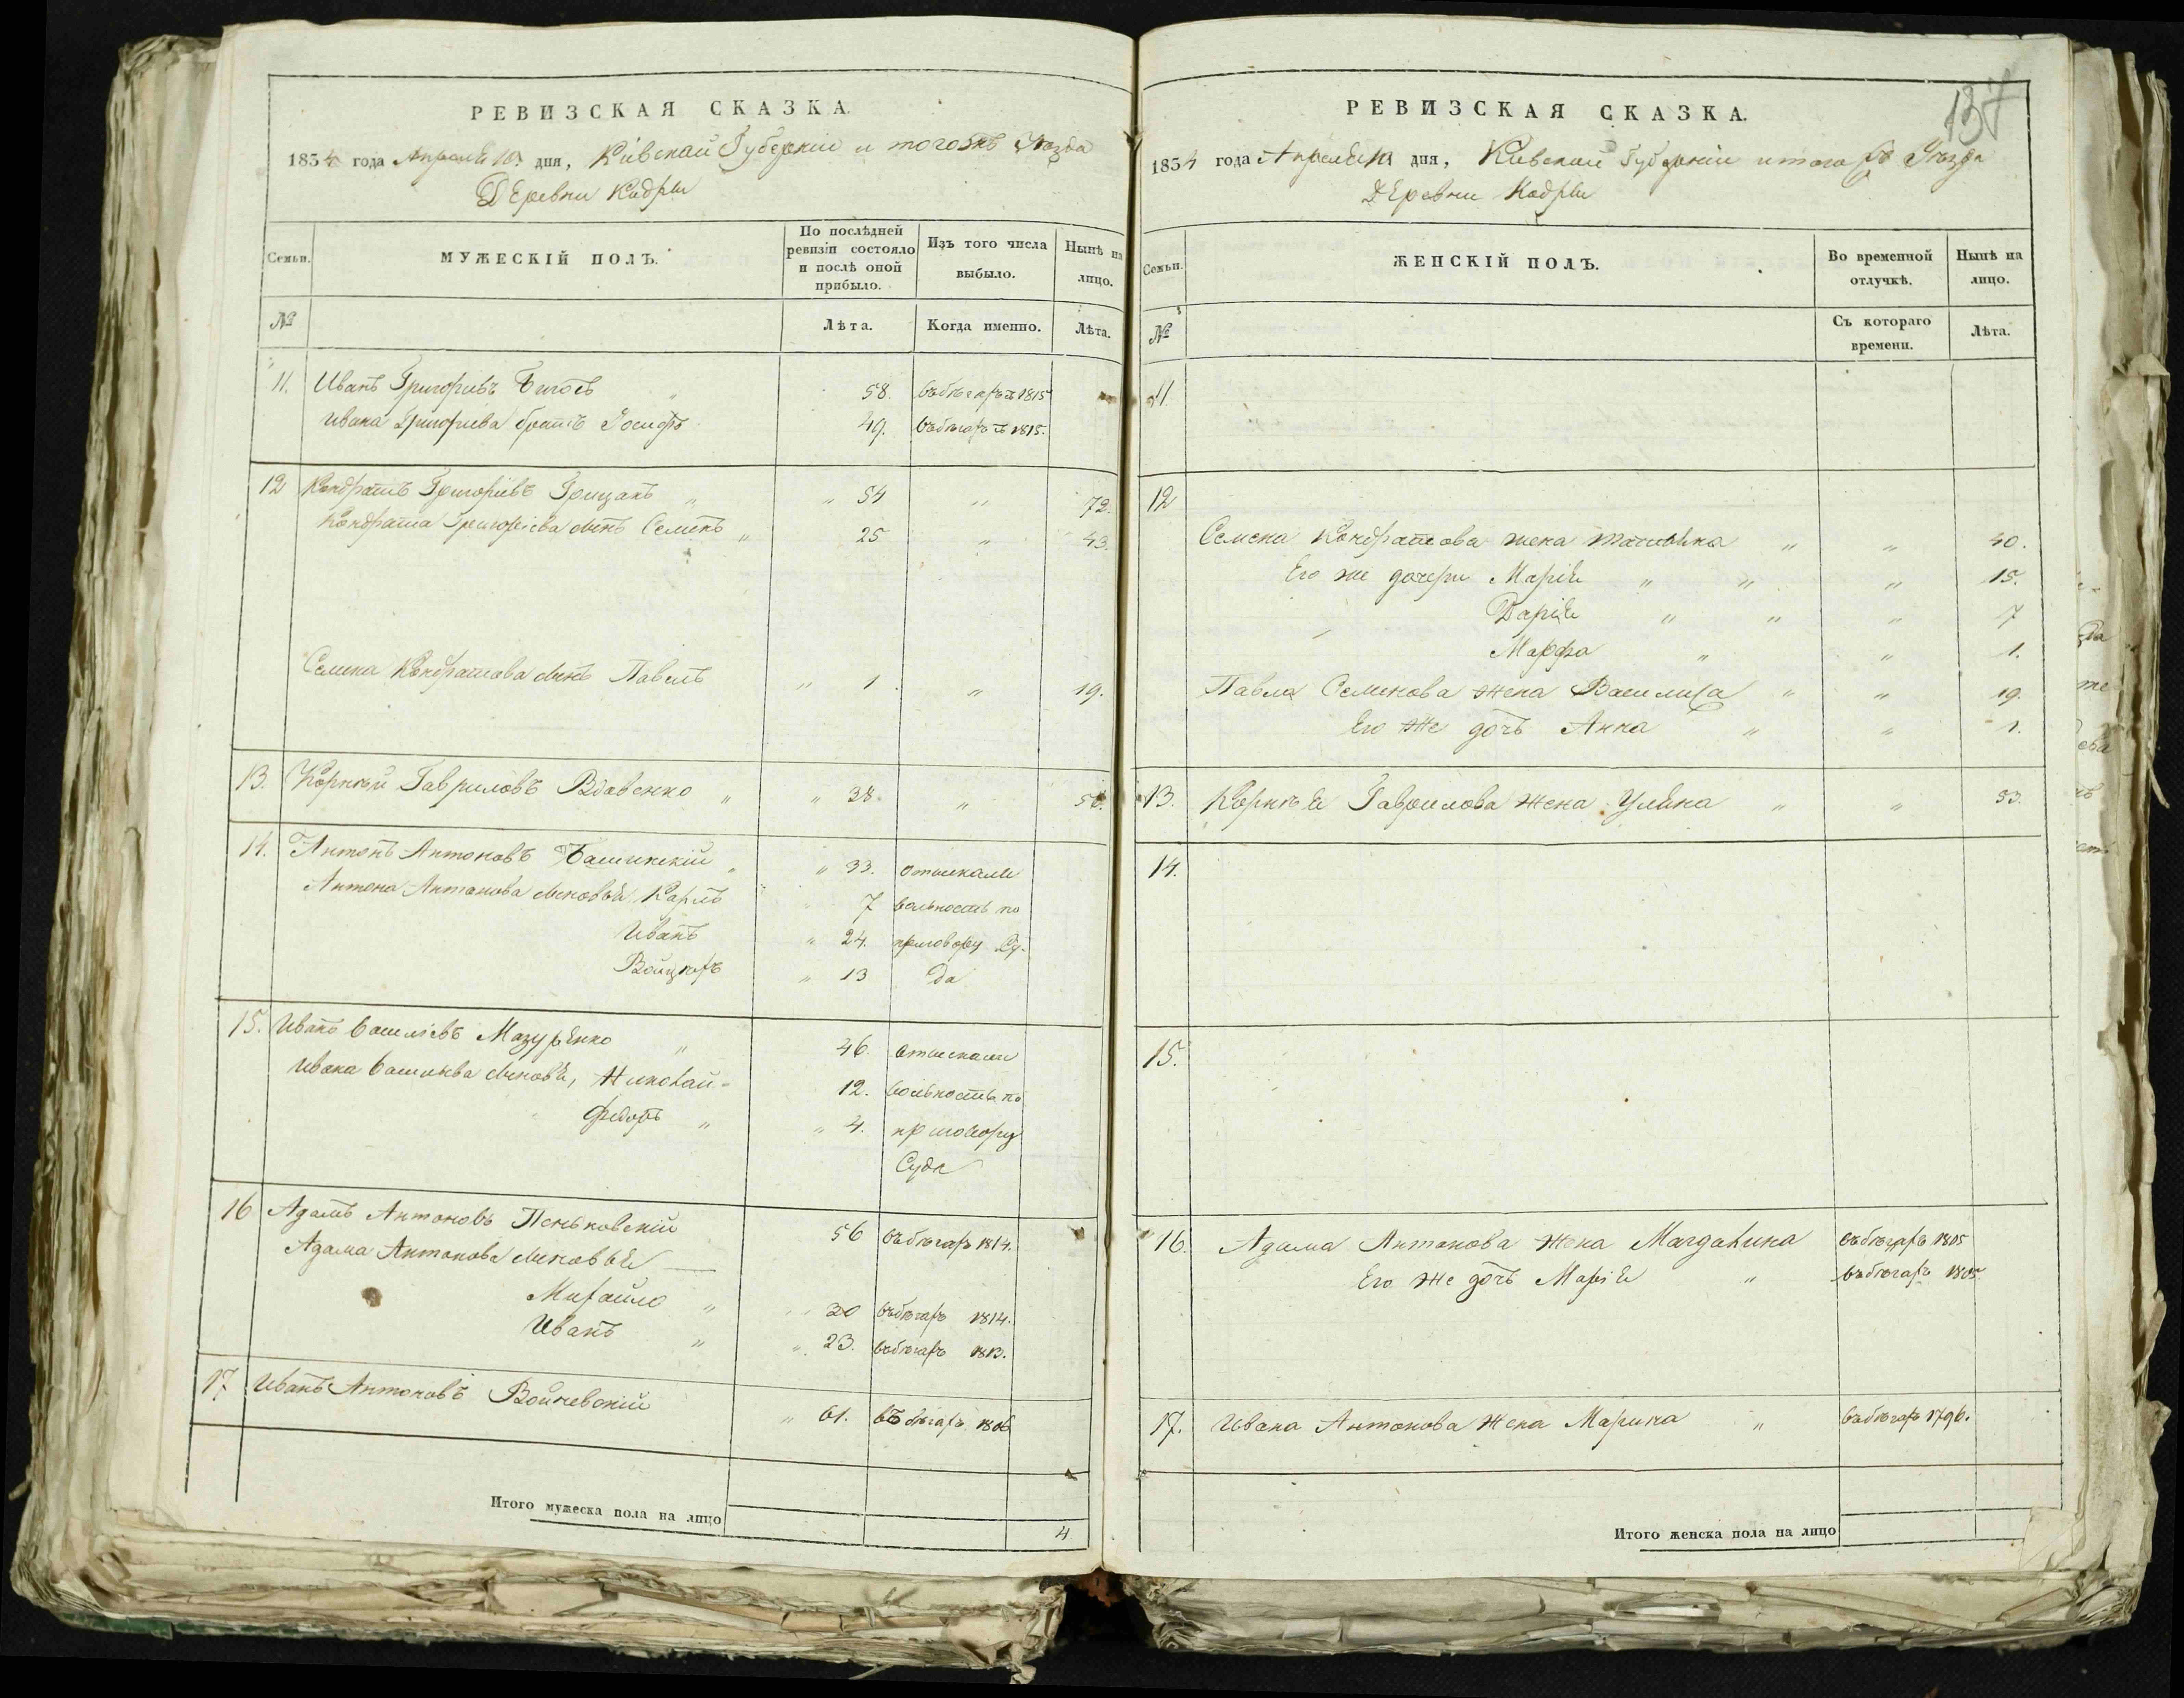 РЕВИЗСКАЯ СКАЗКА.
1834 года Апреля 10 дня, Кіевской Губерніи и того жъ Уѣзда
Деревни Кодры
Семьи.
МУЖЕСКІЙ ПОЛЪ.
По послѣдней ревизіи состояло и послѣ оной прибыло.
Изъ того числа выбыло.
Нынѣ на лицо.
№
Лѣта.
Когда именно.
Лѣта.
11. Иванъ Григорьевъ 58. въ бѣгахъ съ 1815
Ивана Григорьева братъ Іосифъ 49. въ бѣгахъ съ 1815.
12 Кондратъ Григоріевъ Грицакъ " " 54 " 72.
Кондрата Григоріева сынъ Семенъ " 25 " 43.
Семена Кондратова сынъ Павелъ " 1. " 19.
13. Корнѣй Гавриловъ Вдовенко " " 38. " 56.
14. Антонъ Антоновъ " " 33. отыскали
Антона Антонова сыновья Карлъ " 7 вольность по
Иванъ " 24. приговору Су-
Войцехъ " 13 да
15. Иванъ Василіевъ Мазуренко " 46. отыскали
Ивана Васильева сыновья, Николай 12. вольность по
Федотъ " " 4. приговору
Суда
16 Адамъ Антоновъ Пеньковскій 56 въ бѣгахъ 1814.
Адама Антонова сыновья
Михайло " " 30 въ бѣгахъ 1814.
Иванъ " " 23. въ бѣгахъ 1813.
17 Иванъ Антоновъ Войневскій " 61. въ бѣгахъ 1806
Итого мужеска пола на лицо 4
137
РЕВИЗСКАЯ СКАЗКА.
1834 года Апреля 10 дня, Кіевской Губерніи и того жъ Уѣзда
Деревни Кодры
Семьи.
ЖЕНСКІЙ ПОЛЪ.
Во временной отлучкѣ.
Нынѣ на лицо.
№
Съ котораго времени.
Лѣта.
11.
12
Семена Кондратова жена Татьяна " " 40.
Его же дочери Марія " " " 15.
Дарія " " " 7
Марфа " " 1.
Павла Семенова жена Василиса " " 19.
Его же дочь Анна " " 1.
13. Корнѣя Гаврилова жена Ульяна " " 53.
14.
15.
16. Адама Антонова жена Магдалина въ бѣгахъ 1805
Его же дочь Марія " въ бѣгахъ 1805.
17. Ивана Антонова жена Марина " въ бѣгахъ 1796.
Итого женска пола на лицо